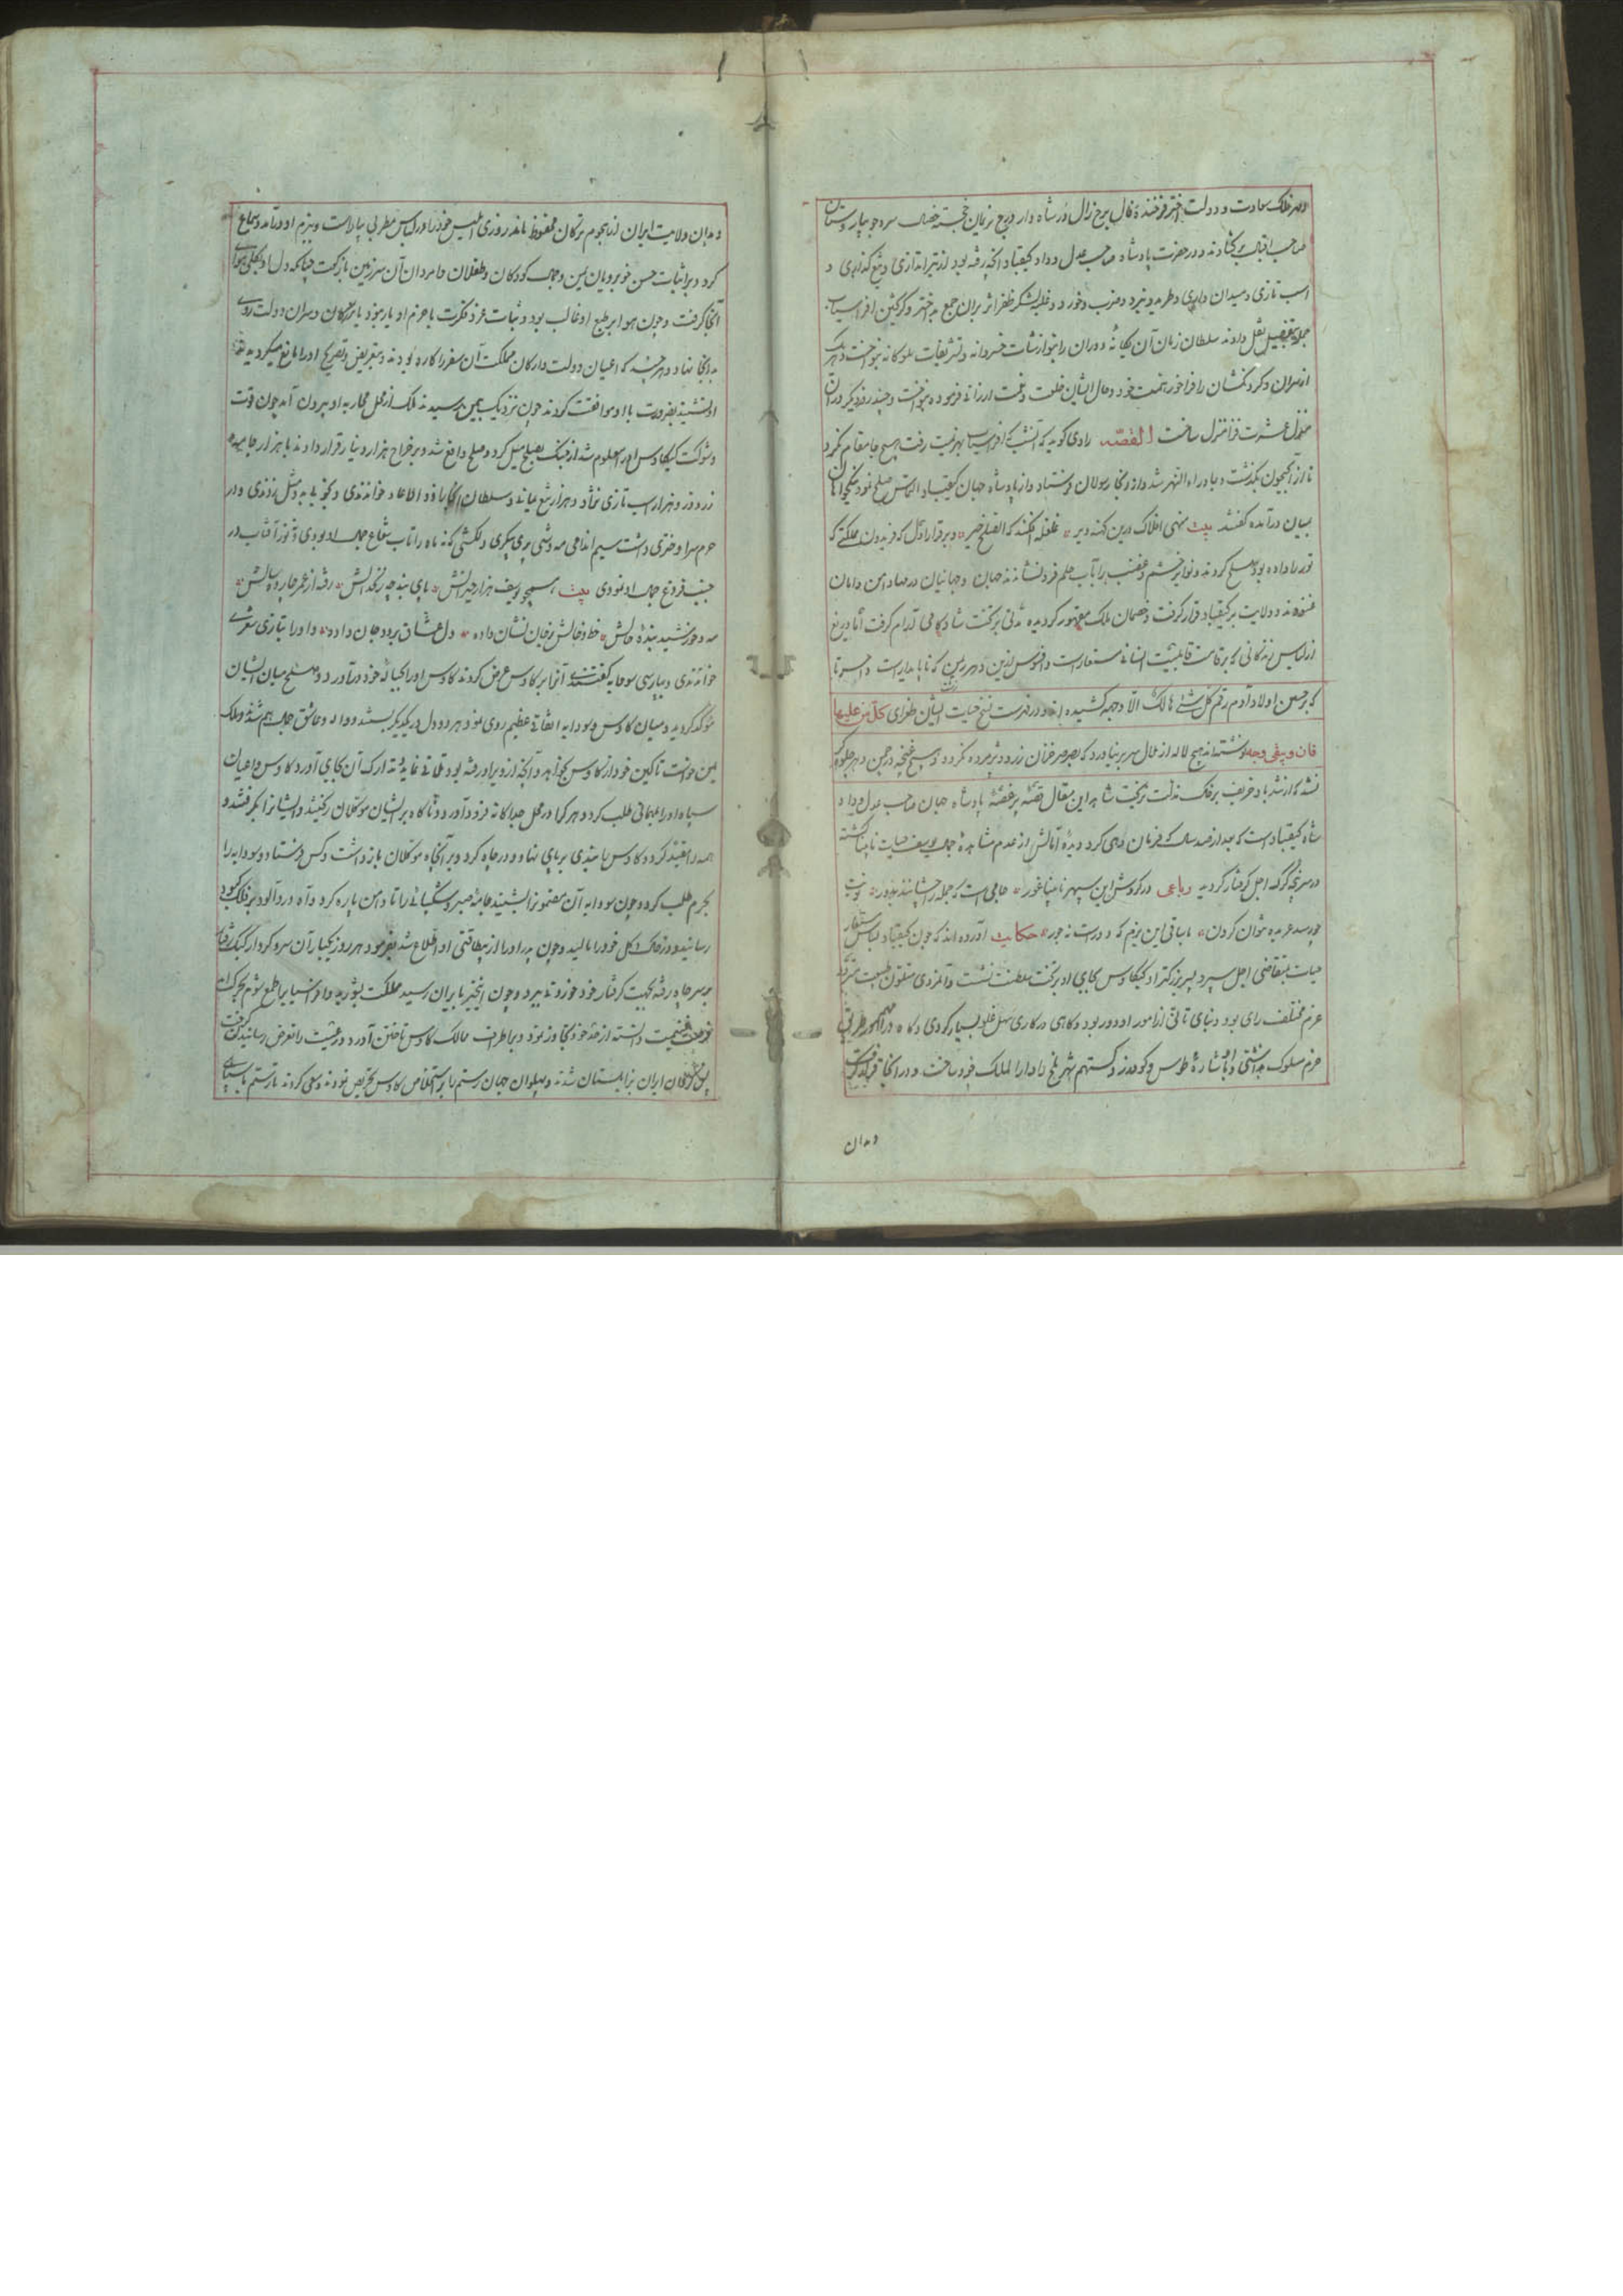 و مهر فلک سعادت و دولت اختر فرخنده فال برج زال در شاه وار درج نریمان خجسته خصال سرو جویبار
صاحب اقبال بر گشادند و در حضرت پادشاه صاحب عدل و داد کیقباد آنچه رفته بود از تیراندازی و تیغ گذاری و
اسب تازی و میدان داری و طرید و نبرد و ضرب و خورد و غلبه لشکر ظفر اثر بر آن جمع بد اختر و گرگین افراسیاب
جمله بتفصیل نقل دادند سلطان زمان آن یگانه دوران را بنوازشات خسروانه و تشریفات ملوکانه بنواخت و هر یک
از سران و گردنکشان را فراخور همت خود و حال ایشان خلعت و نعمت ارزانی فرموده بنواخت و چند روز دیگر در آن
منزل عشرت فزا منزل ساخت القصه راوی گوید که آن شب که افراسیاب بهزیمت رفت هیچ جا مقام نکرد
تا از آب جیحون بگذشت و بماوراء النهر شد و از آنجا رسولان فرستاد و از پادشاه جهان کیقباد التماس صلح نمود
بمیان درآمده گفتند بیت منهی افلاک درین کهنه دیر غلغله افکند که الصلح خیر و بر قرار اول که فریدون مملکتی که
تور را داده بود صلح کردند و نوایر خشم و غضب را بآب حلم فرو نشاندند جهان و جهانیان در مهاد امن و امان
غنودند و ولایت بر کیقباد قرار گرفت و خصمان ملک مقهور گردیده مدتی بر تخت شادکامی آرام گرفت اما دریغ
از لباس زندگانی که بر قامت قابلیت انسانی مستعار است و افسوس ازین دهر بی بن که ناپایدار است و احسرتا
که بر جبین اولاد آدم رقم کل شیء هالک الا وجهه کشیده اند و در فهرست نسخ حیات ایشان طغرای کل من علیها
فان و یبقی وجه نوشته اند هیچ لاله از خاک سر بر نیاورد که بصرصر خزان زرد و پژمرده نکردد و هیچ غنچه در چمن دهر جلوه کر
نشد که از تند باد خریف بر خاک مذلت نریخت شاهد این مقال قصه پر غصه پادشاه جهان صاحب عدل و داد
شاه کیقباد است که بعد از صد سال که فرمان دهی کرد دیده آمالش از عدم مشاهده جمال یوسف حیات نابینا گشته
در سر پنجه گرگ اجل گرفتار گردید رباعی در گردش این سپهر ناپیدا غور جامی است که جمله را چشانند بدور نوبت
چو رسد عربده نتوان کردن با ساقی این بزم که دورست نه جور حکایت آورده اند که چون کیقباد لباس مستعار
حیات بتقاضی اجل سپرد پسر بزرگتر او کیکاوس بجای او بر تخت سلطنت نشست و او مردی متلون طبیعت
عزم مختلف رای بود و بنای تانی از امور او دور بود و گاهی در کاری سهل غلو بسیار کردی و گاه در امور طریق
حزم مسلوک نداشتی و باشاره طوس و گودرز و گستهم شهر بلخ را دار الملک خود ساخت و در آنجا قرار گرفت
و بدان
و بدان ولایت ایران از هجوم ترکان محفوظ ماند روزی ابلیس خود را در لباس مطربی بیاراست و ببزم او درآمد و سماع
کرد و بر اثبات حسن خوبرویان یمن و جمال کودکان و طفلان و امردان آن سرزمین بازگفت چنانکه دل او بکلی هوای
آنجا گرفت و چون هوا بر طبع او غالب بود و ثبات عزم و فکرت با حزم او یار نبود با بزرگان و سران دولت روی
بدانجا نهاد و هرچند که اعیان دولت و ارکان مملکت آن سفر را کاره بودند و بتعریض و تصریح او را مانع میگردیدند
او نشنید بضرورت با او موافقت کردند چون نزدیک یمن رسیدند ملک از محل محاربه او بیرون آمد چون قوت
و شوکت کیکاوس او را معلوم شد از جنگ بصلح میل کرد و صلح واقع شد و بر خراج هزار دینار قرار دادند با هزار جامه
زر دوز و هزار اسب تازی نژاد و هزار تیغ یمانی و سلطان آنجا را ذو الاذعار خواندندی و بخوبی بی مثل زدندی و در
حرم سرا دختری داشت سیم اندامی مه وشی پری پیکری دلکشی که نه ماه را تاب شعاع جمال او بودی و نور آفتاب در
جنب فروغ جمال او نمودی بیت همچو یوسف هزار حیرانش پای بند چه زنخدانش رفته از عمر چارده سالش
مه و خورشید بنده خالش خط و خالش ز جان نشان داده دل عشاق برده جان داده و او را بتازی سعدی
خواندندی و بپارسی سودابه گفتندی آنرا بر کاوس عرض کردند کاوس او را بحباله خود درآورد و صلح میان ایشان
مؤکد گردید و میان کاوس و سودابه اتفاقی عظیم روی نمود و هر دو دل در یکدیگر بستند و واله و عاشق جمال هم شدند و ملک
یمن خواست تا کین خود از کاوس بخواهد و آنچه از و بر او رفته بود تلافی نماید و تدارک آن بجای آورد کاوس و اعیان
سپاه او را بمهمانی طلب کرد و هر کرا در محل جداگانه فرود آورد و ناگاه بر ایشان موکلان برگخیتند و ایشانرا بگرفتند و
همه را مقید کرد و کاوس را بندی بر پای نهاد و در چاه کرد و بر آنچاه موکلان بازداشت و کس فرستاد و سودابه را
بحرم طلب کرد و چون سودابه آن مضمون را شنید جامه صبر و شکیبائی را تا دامن پاره کرد و آه درد آلود بر فلک کبود
رسانید و در خاک شکل خود را مالید و چون پدر او را از بیطاقتی او اطلاع شد بفرمود هر روز یکبار آن سرو کردار
بر سر چاه رفته بجهت گرفتار خود خوردنی میبرد و چون این خبر بایران رسید مملکت بشورید و افراسیاب را طمع شوم بحرکت
فرصت غنیمت دانسته از حد خود تجاوز نمود و بر اطراف ممالک کاوس تاختن آورد و رعیت را تعرض رسانیدن گرفت
پس بزرگان ایران بزابلستان شدند و پهلوان جهان رستم را بر استخلاص کاوس تحریص نمودند و سعی کردند تا رستم با سپاهی